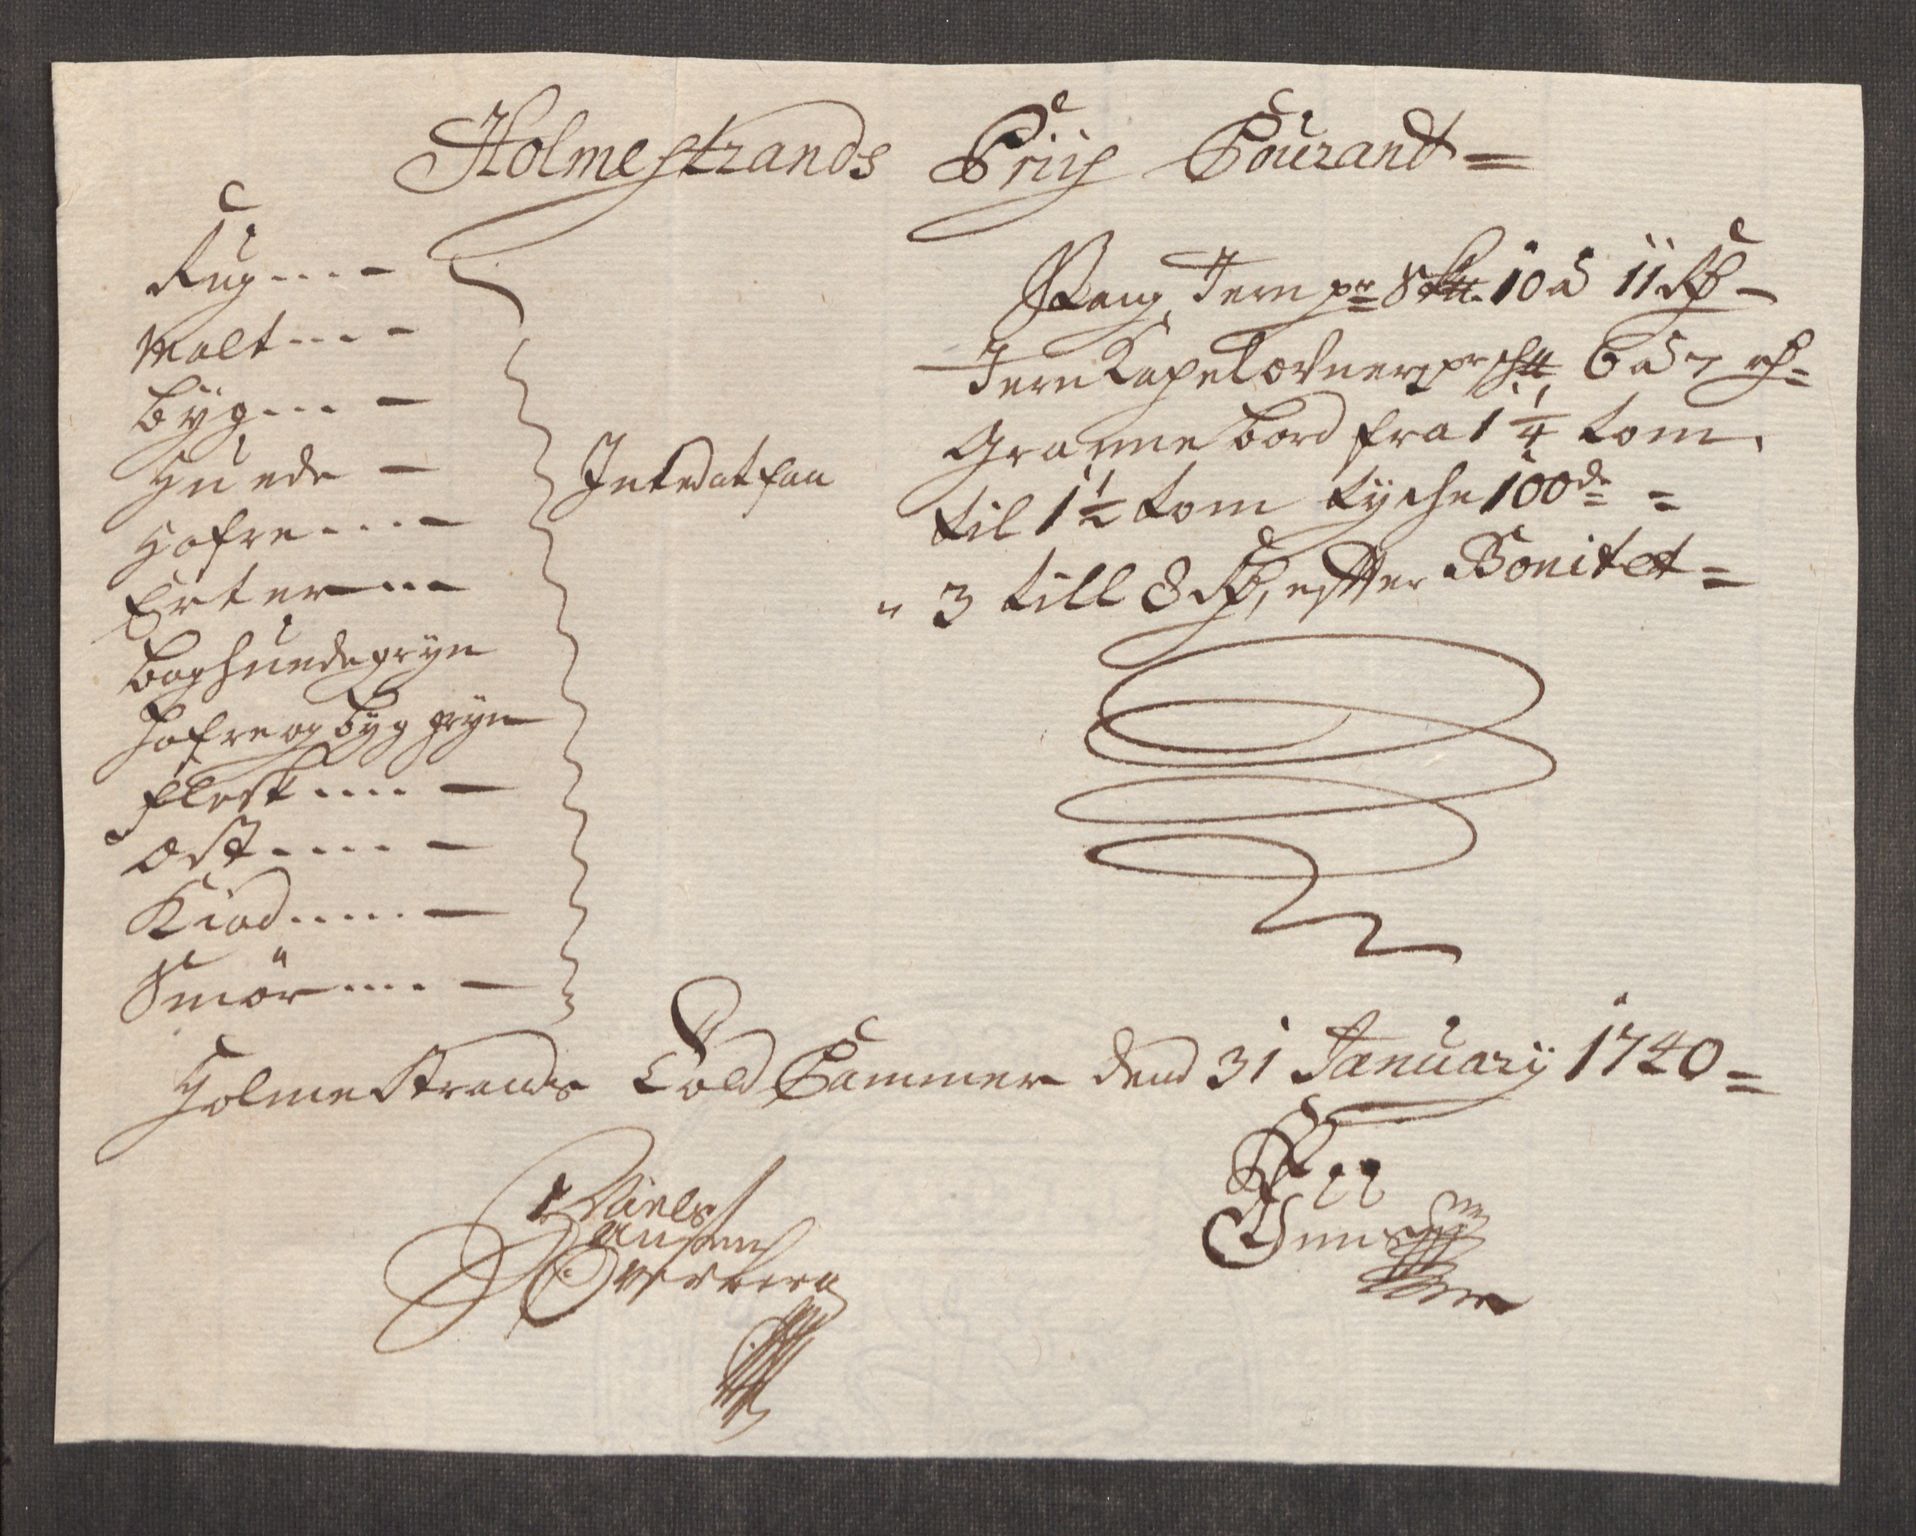 Holmestrands Priis Courant =
Rug .... -
Malt .... -
Byg .... -
Huede -
Hafre .... -
Erter ...
Boghuedegryn
Hafre og Byg gryn
Flesk .... -
Ost ..... -
Kiød ..... -
Smör .... -
Intedat faa
Stang Jern pr 10 a 11 Rd -
Jern Kakelovner pr 6 a 7 rd =
Granne bord fra 1 1/4 tom
til 1 1/2 tom tyche 100de =
" 3 till 8 Rd, effter Bonitet =
Holmestrands Told Cammer dend 31 January 1740 =
Niels
Hansen